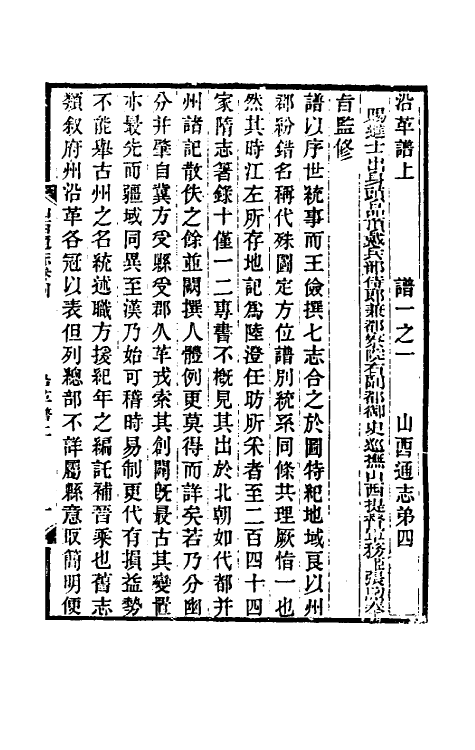 沿革譜上　譜一之一　山西通志第四
賜進士出身頭品頂戴兵部侍郎兼都察院右副都御史巡撫山西提督軍務
旨監修
譜以序世統事而王儉撰七志合之於圖特紀地域良以州
郡紛錯名稱代殊圖定方位譜別統系同條共理厥恉一也
然其時江左所存地記爲陸澄任昉所采者至二百四十四
家隋志著錄十僅一二專書不槪見其出於北朝如代都并
州諸記散佚之餘並闕撰人體例更莫得而詳矣若乃分幽
分并肇自冀方受縣受郡人革戎索其創闢旣最古其變置
亦最先而疆域同異至漢乃始可稽時易制更代有損益勢
不能舉古州之名統述職方援紀年之編託補晉乘也舊志
類叙府州沿革各冠以表但列總部不詳屬縣意取簡明便